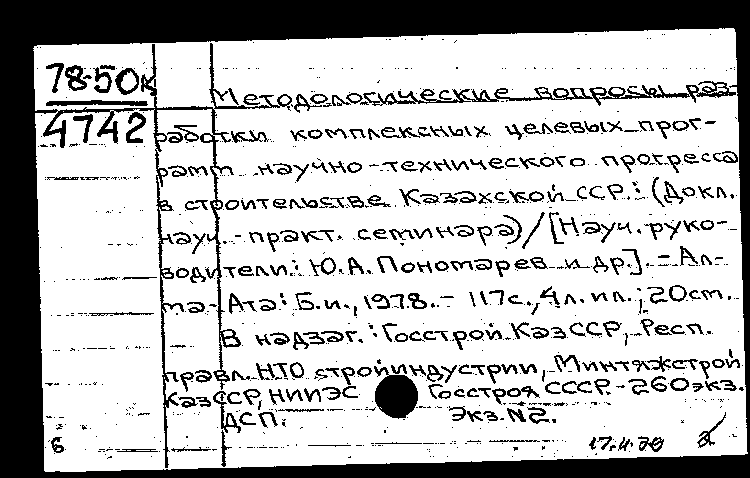 78-50к
4742
Методологические вопросы раз-
работки комплексных целевых прог-
рамм научно-технического прогресса
в строительстве Казахской ССР.: (Докл.
науч.-практ. семинара)/[Науч. руко-
водители: Ю.А. Пономарев и др.]. - Ал-
ма-Ата: Б.и., 1978. - 117с., 4л. ил.; 20см.
В надзаг.: Госстрой КазССР, Респ.
правл. НТО стройиндустрии, Минтяжстрой
КазССР, НИИЭС Госстроя СССР. - 260экз.
ДСП. Экз. №2.
Б